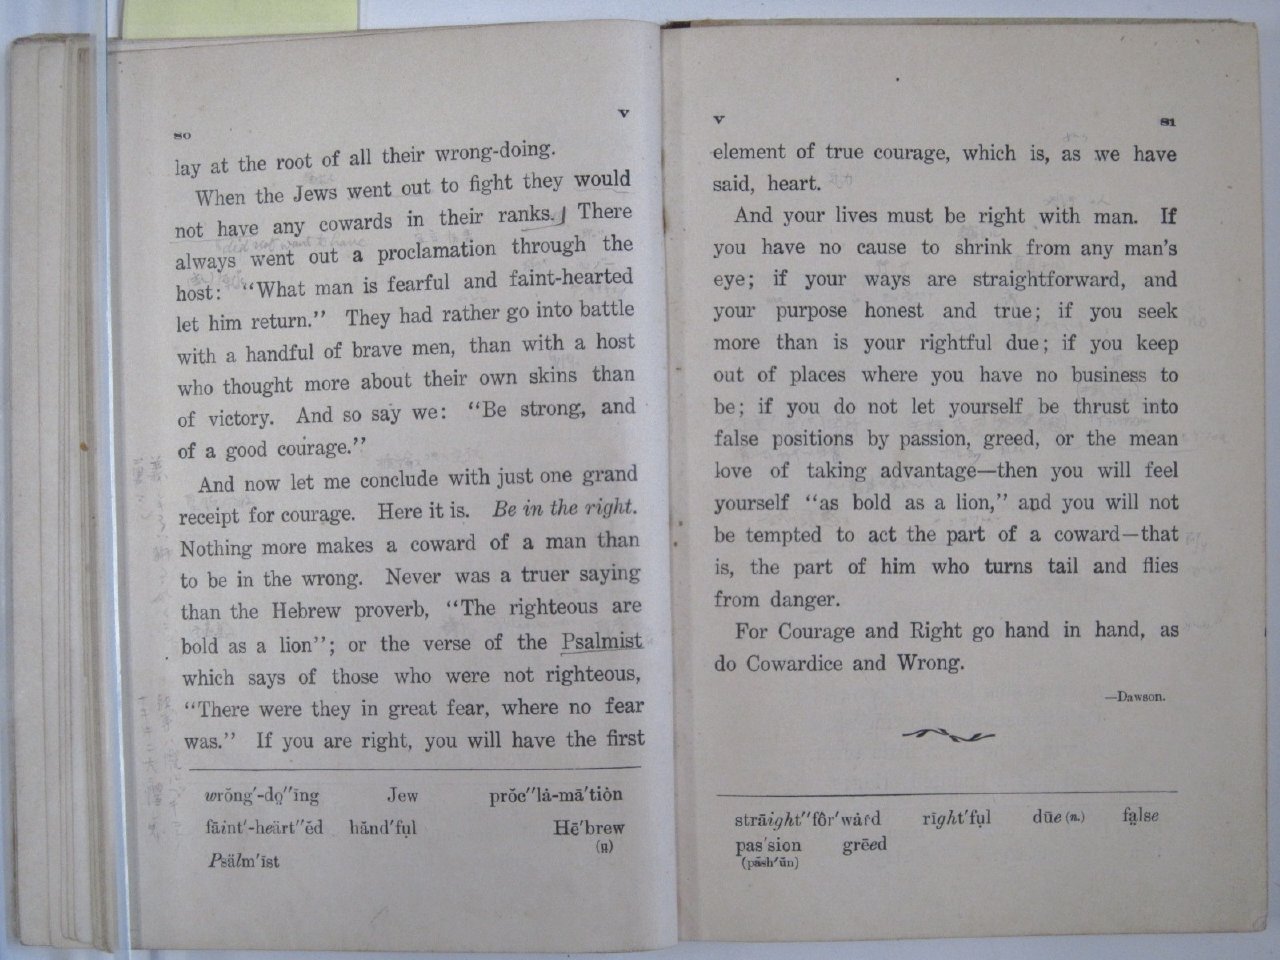 80
V
lay at the root of all their wrong-doing.
When the Jews went out to fight they would
not have any cowards in their ranks. There
did not want to have
always went out a proclamation through the
host: “What man is fearful and faint-hearted
let him return.” They had rather go into battle
with a handful of brave men, than with a host
who thought more about their own skins than
of victory. And so say we: “Be strong, and
of a good courage.”
And now let me conclude with just one grand
receipt for courage. Here it is. Be in the right.
Nothing more makes a coward of a man than
to be in the wrong. Never was a truer saying
than the Hebrew proverb, “The righteous are
bold as a lion”; or the verse of the Psalmist
which says of those who were not righteous,
“There were they in great fear, where no fear
was.” If you are right, you will have the first
wrŏng′-dọ″ĭng Jew prŏc″lȧ-mā′tiȯn
fāint′-heärt″ĕd hănd′fụl Hē′brew
(ṳ)
Psälm′ĭst
V
81
element of true courage, which is, as we have
said, heart.
And your lives must be right with man. If
you have no cause to shrink from any man’s
eye; if your ways are straightforward, and
your purpose honest and true; if you seek
more than is your rightful due; if you keep
out of places where you have no business to
be; if you do not let yourself be thrust into
false positions by passion, greed, or the mean
love of taking advantage—then you will feel
yourself “as bold as a lion,” and you will not
be tempted to act the part of a coward—that
is, the part of him who turns tail and flies
from danger.
For Courage and Right go hand in hand, as
do Cowardice and Wrong.
—Dawson.
strāight″fôr′wȧrd rīght′fụl dūe (n.) fa̤lse
pas′sion grēed
(păsh′ŭn)